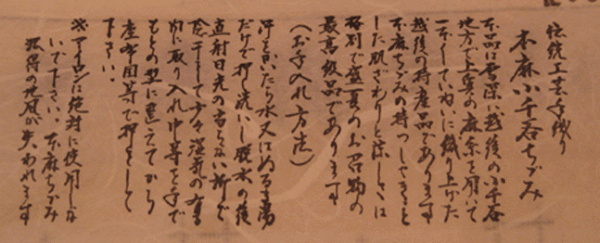 伝統工芸手織り
本麻小千谷ちぢみ
本品は雪深い越後の小千谷
地方で上質の麻糸を用いて
一本一本ていねいに織り上げた
越後の特産品であります
本麻ちぢみの持つしゃきっと
した肌ざわりと涼しさは
格別で盛夏のお召物の
最高級品であります
（お手入れ方法）
汗をかいたら水又はぬるま湯
だけで押し洗いし脱水の後
直射日光の当らない所で
陰干しで少々湿気の有る
内に取り入れ巾等を手で
もとの型に整えてから
座布団等で押しをして
下さい。
※アイロンは絶対に使用しな
いで下さい。本麻ちぢみ
独得の地風が失われます